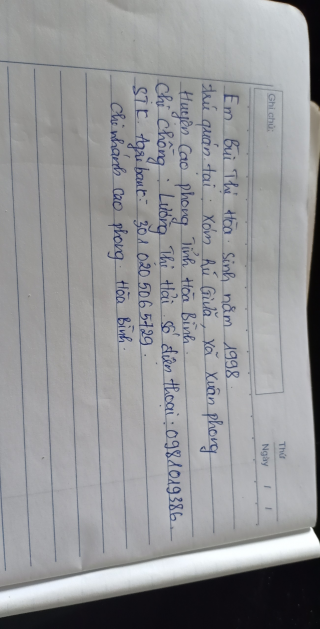 Ghi chú:
Thứ
Ngày / /
Em Bùi Thị Hòa. Sinh năm 1998.
trú quán tại. Xóm Rú Giữa, Xã Xuân phong
Huyện Cao phong Tỉnh Hòa Bình.
Chị Chồng. Lường Thị Hải số điện thoại: 0981019386.
STK Agribank: 3010205065729.
Chi nhánh Cao phong. Hòa Bình.